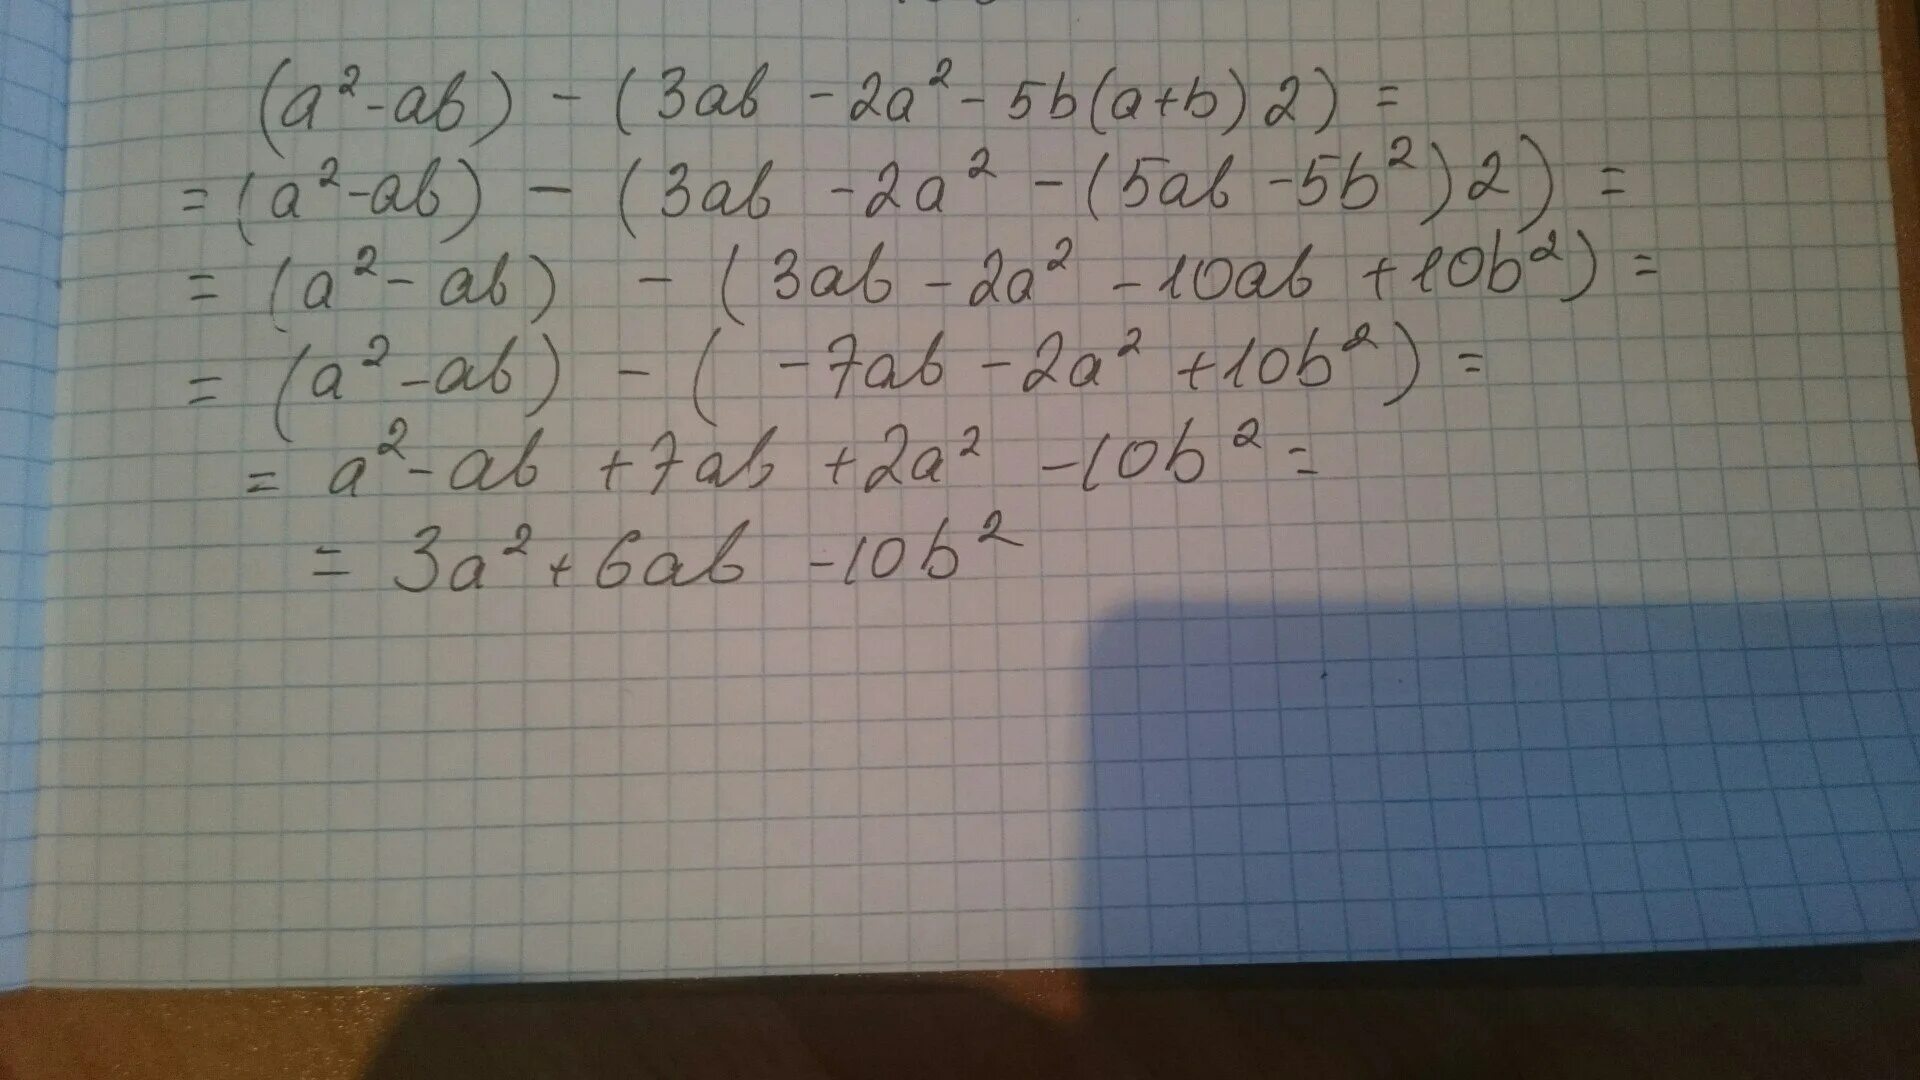 (a²-ab) - (3ab - 2a² - 5b(a+b)2) =
= (a²-ab) - (3ab - 2a² - (5ab - 5b²)2) =
= (a² - ab) - (3ab - 2a² - 10ab + 10b²) =
= (a² - ab) - ( - 7ab - 2a² + 10b²) =
= a² - ab + 7ab + 2a² - 10b² =
= 3a² + 6ab - 10b²